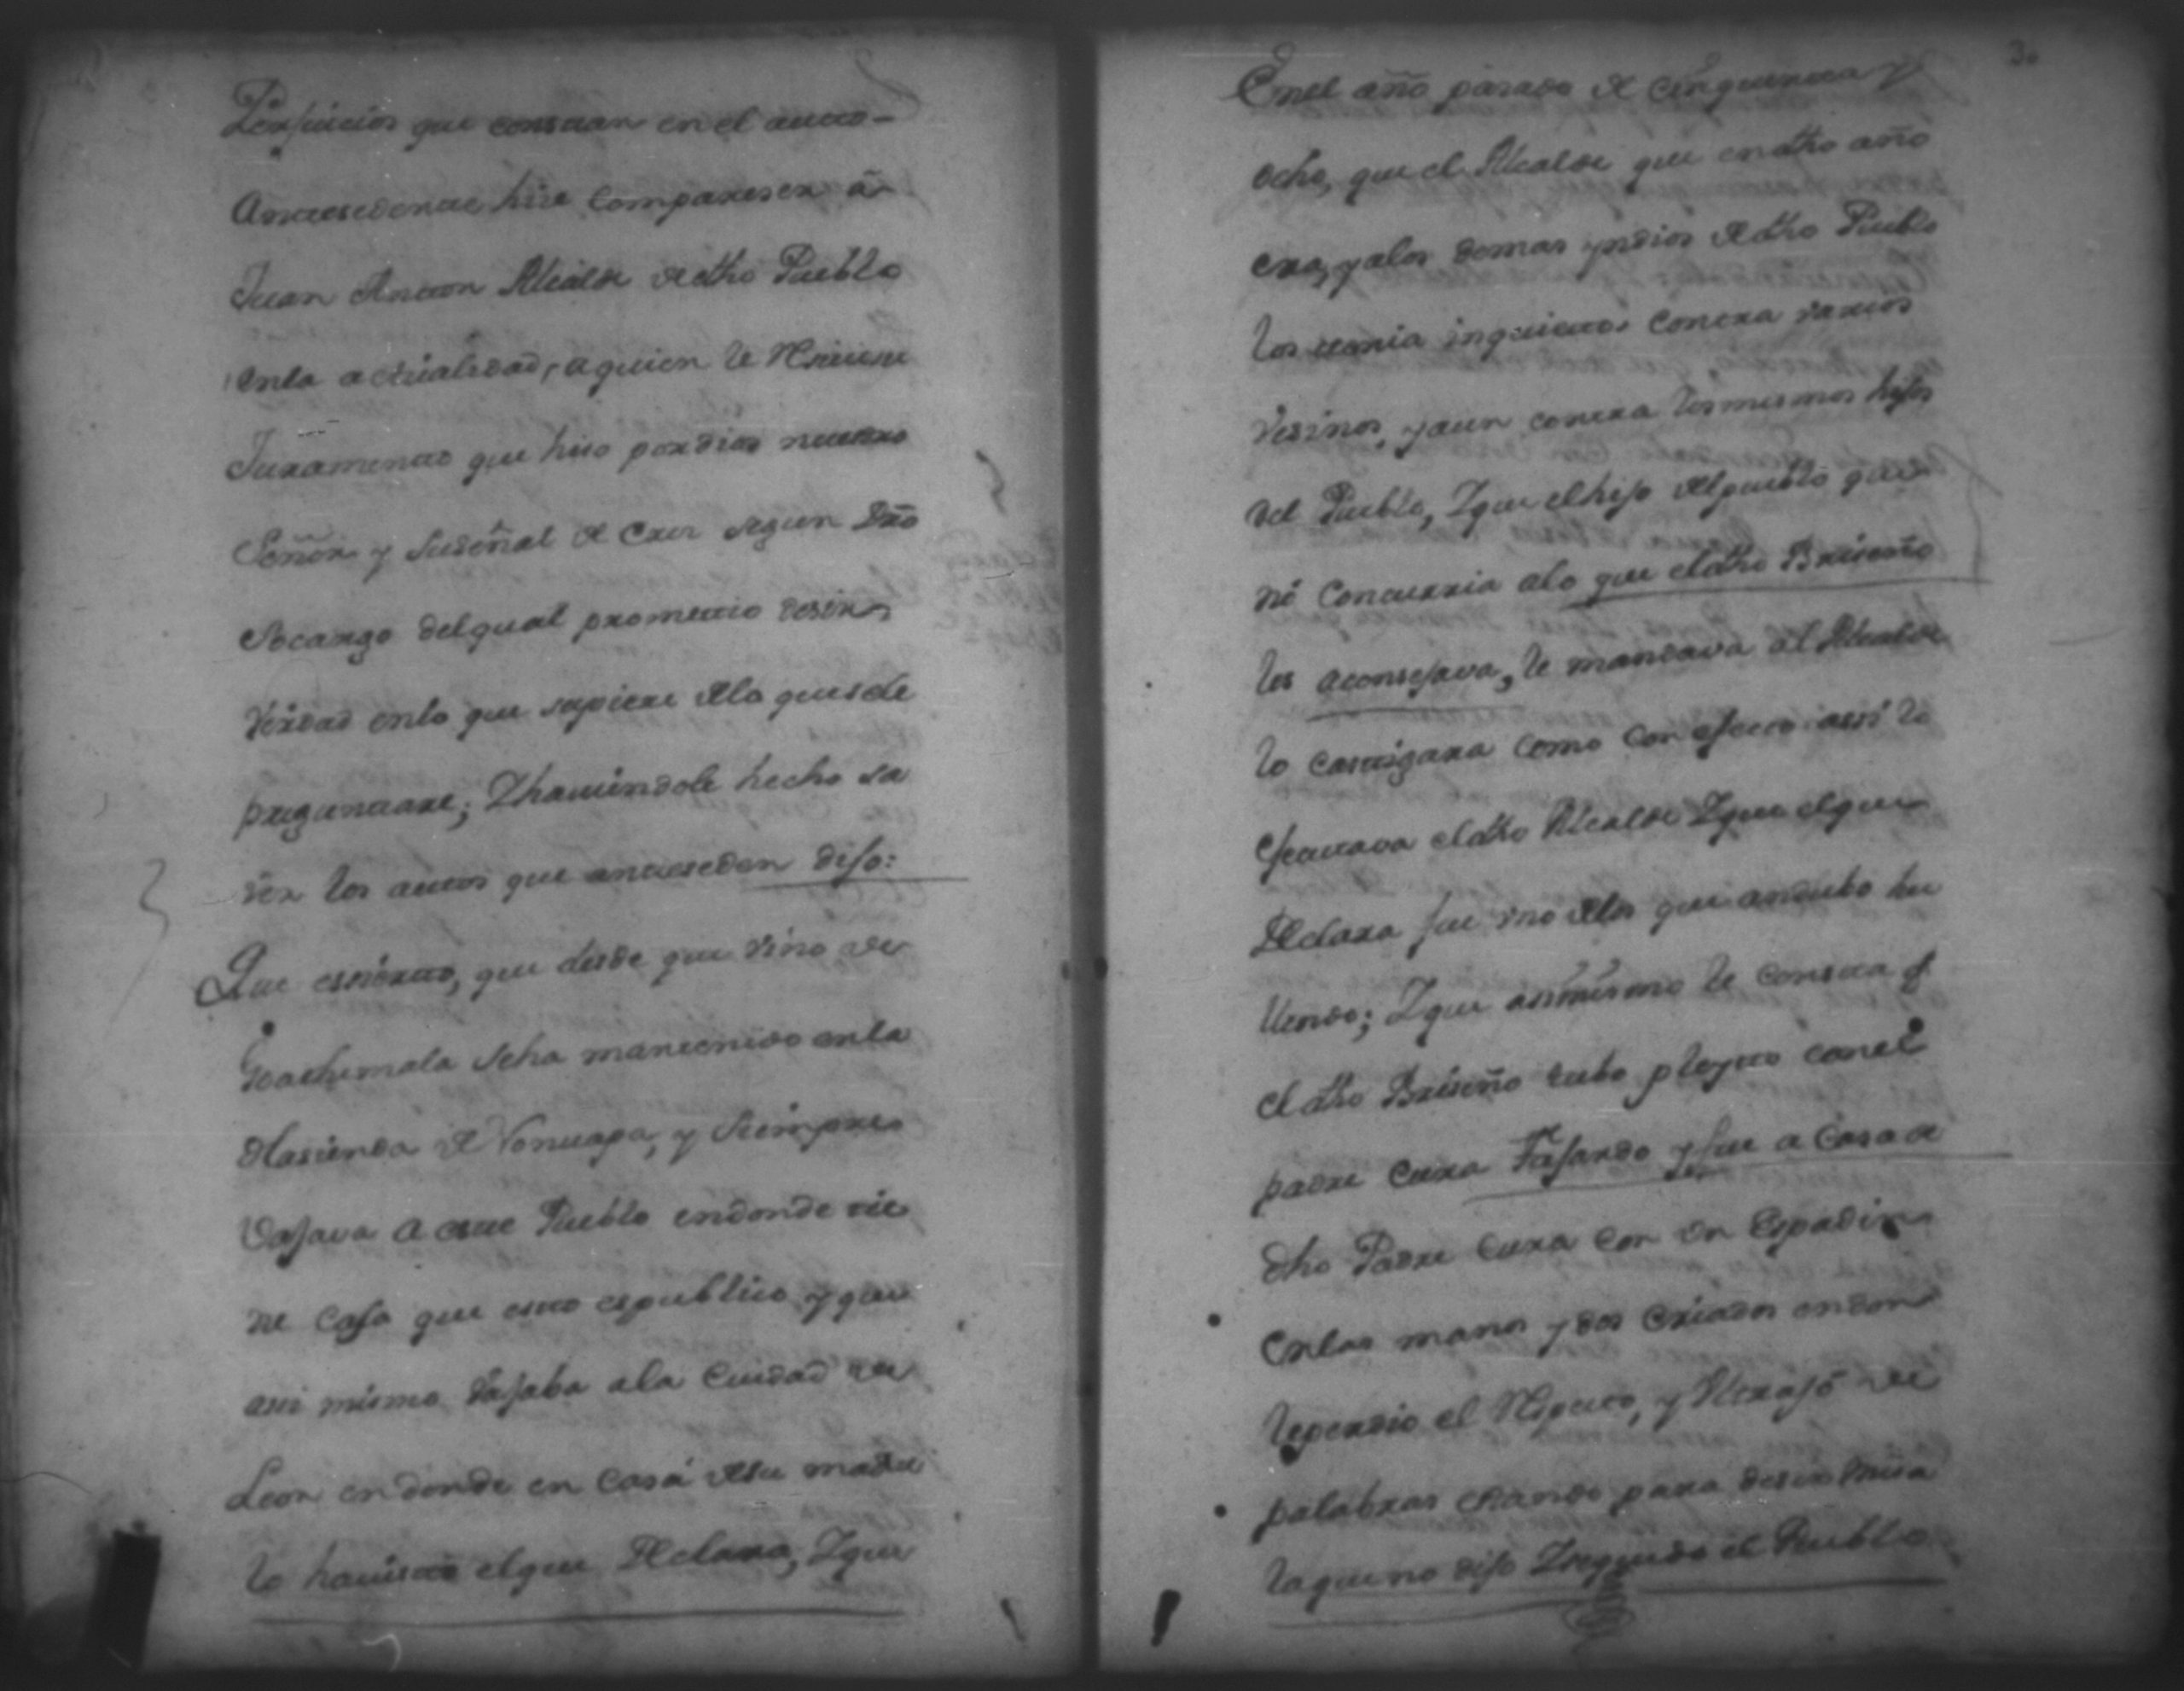 Perjuicios que constan en el auto-
Antesedente hise Compareser â
Juan Anton Alcalde de dho Pueblo
enla actualidad, aquien le Resiví
Juramento que hiso por dios nuestro
Señor y Suseñal de Cruz segun Dro
Socargo delqual prometio desir
Verdad enlo que supiere dela quesele
preguntare; Y haviendole hecho sa
ver los autos que anteseden dijo:
Que escierto, que desde que vino de
Goathemala seha mantenido enla
Hasienda de Nonuapa, y Siempre
Vajava a este Pueblo endonde tie
ne Casa que esto espublico y que
asi mismo Vajaba ala Ciudad de
Leon en donde en Casa desu madre
lo havisto elque Declara, Y que
Enel año pasado de Cinquenta y
ocho, que el Alcalde que endho año
era, yalos demas yndios de dho Pueblo
los tenia inquietos Contra varios
Vesinos, yaun contra losmismos hijos
del Pueblo, Y que elhijo delpueblo que
nó Concurria alo que eldho Briseño
les aconsejava, le mandava al Alcalde
lo castigara como con efecto assi lo
efectuava eldho Alcalde Y que elque
Declara fue vno delos que andubo hu
llendo; Y que assimismo le consta q.
el dho Briseño tubo pleyto conel
padre Cura Fajardo y fue a Casa de
dho Padre Cura con vn Espadin
enlas manos y dos Criados endon
leperdio el Respeto, y Ultrajó de
palabras estando para desir Missa
laqueno dijo Y seguido el Pueblo